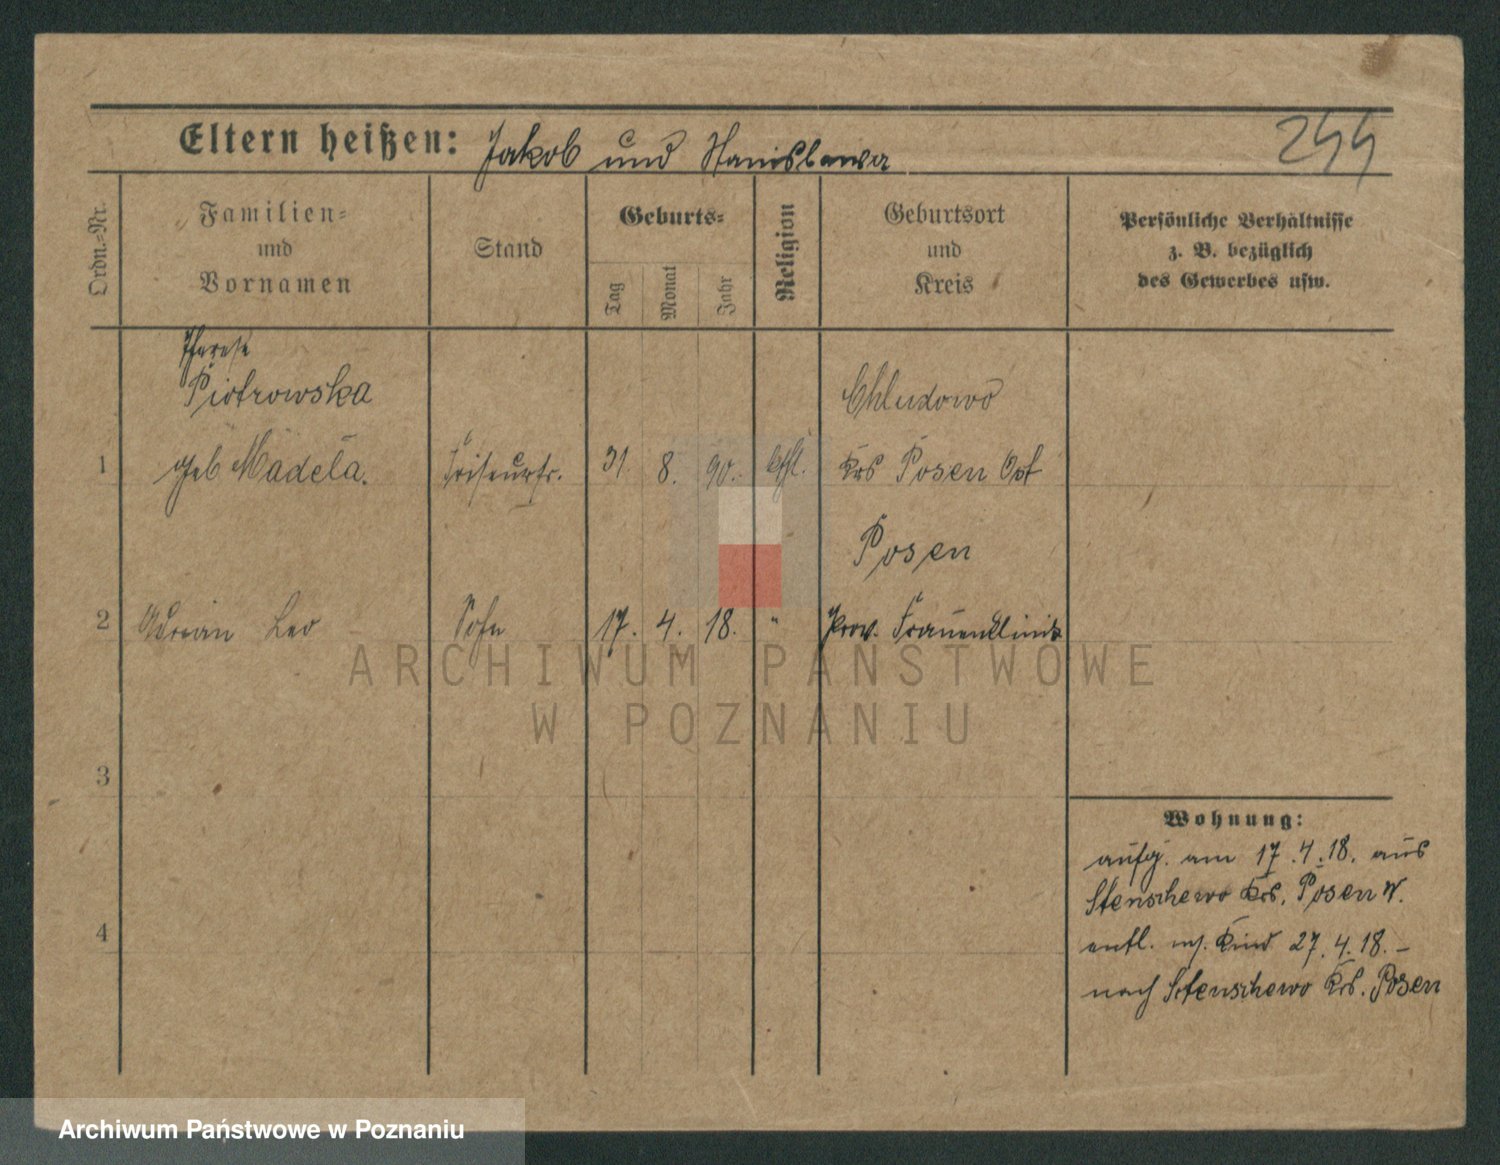 Eltern heißen: Jakob und Stanislawa
244
Ordn.-Nr.
Familien-
und
Vornamen
Stand
Geburts-
Tag
Monat
Jahr
Religion
Geburtsort
und
Kreis
Persönliche Verhältnisse
z. B. bezüglich
des Gewerbes usw.
Therese
Piotrowska
Chludowo
1 geb Madela. Friseurfr. 31. 8. 90. kath. Krs Posen Ost
Posen
2 Adrian Leo Sohn 17. 4. 18. " Prov. Frauenklinik
ARCHIWUM PAŃSTWOWE
W POZNANIU
3
Wohnung:
aufg. am 17.4.18. aus
Stenschewo Krs. Posen W.
4
entl. m. Kind 27.4.18. –
nach Stenschewo Krs. Posen
Archiwum Państwowe w Poznaniu